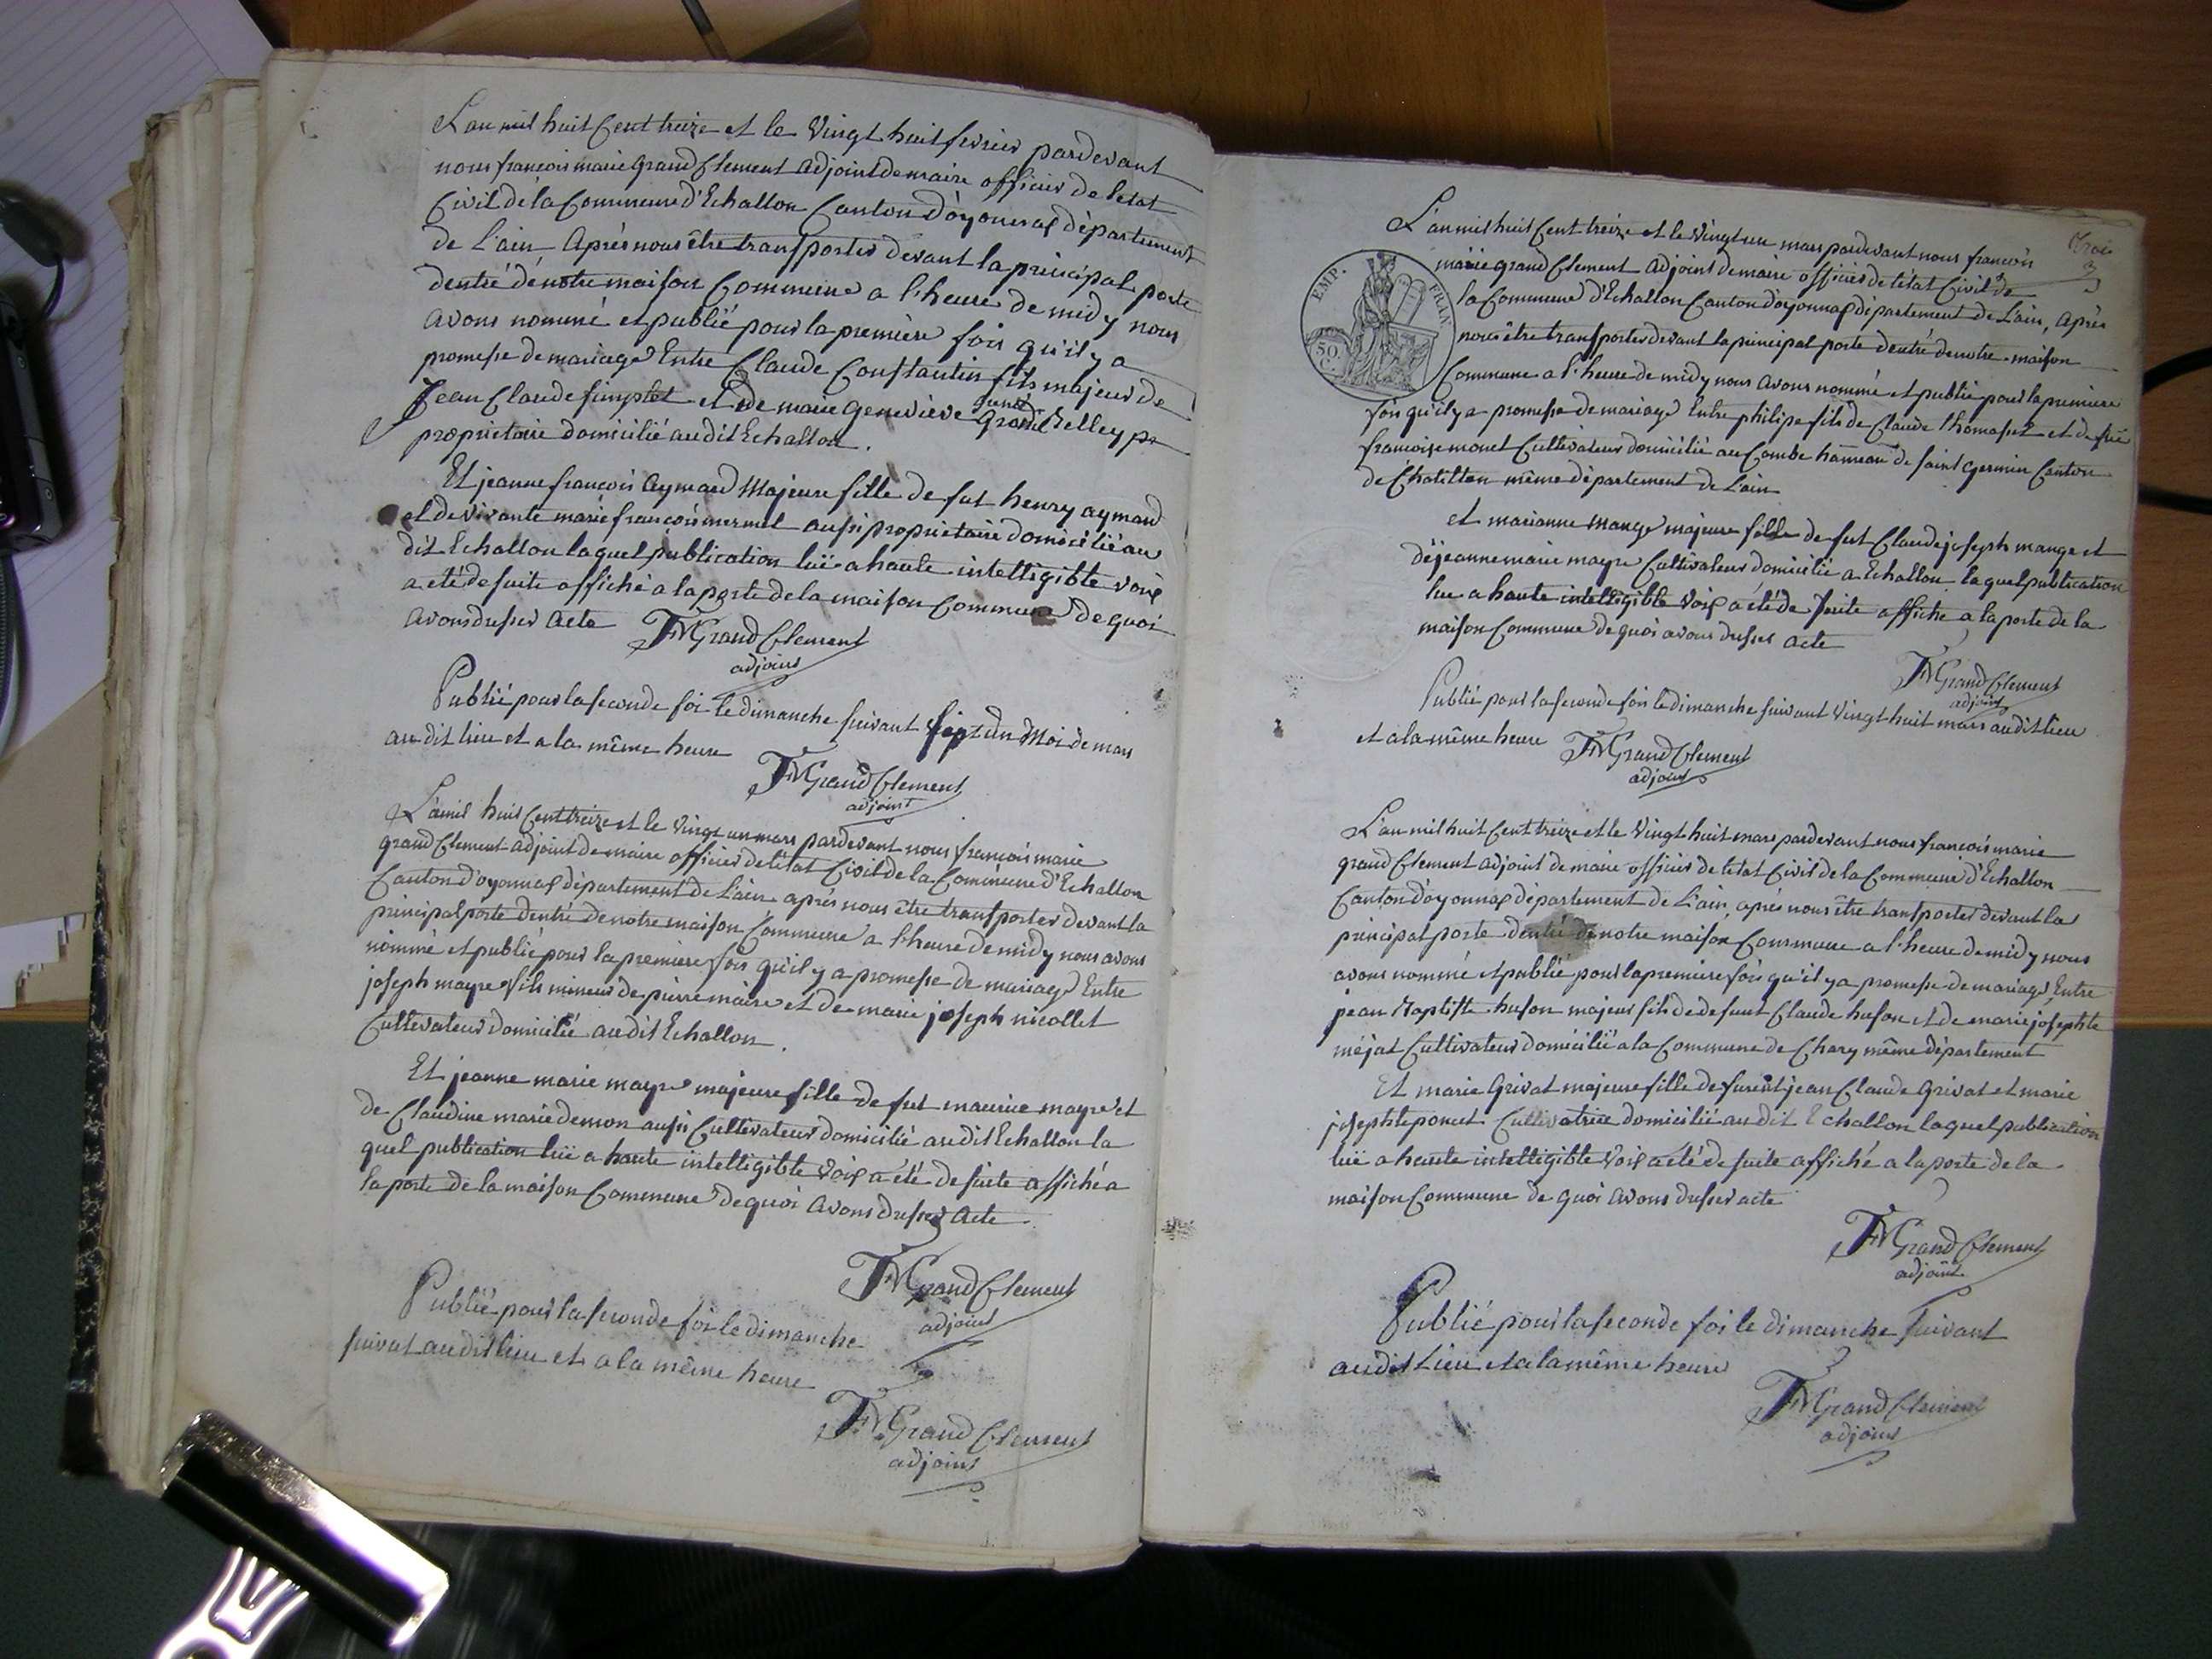 L'an mil huit Cent treize et le Vingt huit fevrier pardevant
nous françois marie Grand Clement Adjoint de maire officier de letat
Civil de la Commune d'Echallon Canton d'oyonnax département
de L'ain Après nous être transporter devant la principal porte
dentré de notre maison Commune a l'heure de midy nous
avons nommé et publié pour la première fois qu'il y a
promesse de mariage Entre Claude Constantin fils majeur de
Jean Claude et de marie Geneviève Grand
propriétaire domicilié audit Echallon.
Et jeanne françois Aymard Majeure fille de fut henry aymard
et de vivante marie françois mermet aussi propriétaire domicilié au
dit Echallon laquel publication luë a haute intelligible voix
a été de suite affiché a la porte de la maison Commune De quoi
avons dresser Acte FM Grand Clement
adjoint
Publié pour la seconde foi le dimanche suivant sept du Moi de mars
au dit lieu et a la même heure FM Grand Clement
adjoint
L'a mil huit Cent treize et le vingt un mars pardevant nous françois marie
grand Clement adjoint de maire officier de létat Civil de la Commune d'Echallon
Canton d'oyonnax département de L'ain après nous être transporter devant la
principal porte dentré de notre maison Commune a l'heure de midy nous avons
nommé et publié pour la première fois qu'il y a promesse de mariage Entre
joseph mayre fils mineur de pierre maire et de marie joseph nicollet
Cultivateur domicilié audit Echallon.
Et jeanne marie mayre majeure fille de fut maurice mayre et
de Claudine marie demon aussi Cultivateur domicilié audit Echallon la
quel publication luë a haute intelligible voix a été de suite affiché a
la porte de la maison Commune De quoi avons dresser Acte
FM Grand Clement
adjoint
Publié pour la seconde foi le dimanche
suivat audit lieu et a la même heure
FM Grand Clement
adjoint
Trois
3
EMP. FRAN.
50.
C.
L'an mil huit Cent treize et le vingt un mars pardevant nous françois
marie grand Clement Adjoint de maire officier de létat Civil de
la Commune d'Echallon Canton d'oyonnax département de L'ain, Après
nous être transporter devant la principal porte dentré de notre maison
Commune a l'heure de midy nous avons nommé et publié pour la premiere
fois qu'il y a promesse de mariage Entre philipe fils de Claude thomasset et de
françoise monet Cultivateur domicilié au Combe hameau de saint germin Canton
de Chatillon même département de L'ain
et marianne mange majeure fille de fut Claude joseph mange et
de jeanne marie mayre Cultivateur domicilié a Echallon laquel publication
lue a haute intelligible Voix a été de suite affiché a la porte de la
maison Commune de quoi avons dresser acte
FM Grand Clement
adjoint
Publié pour la seconde foi le dimanche suivant vingt huit mars audit lieu
et a la même heure FM Grand Clement
adjoint
L'an mil huit Cent treize et le Vingt huit mars pardevant nous françois marie
grand Clement adjoint de maire officier de letat Civil de la Commune d'Echallon
Canton d'oyonnax département de L'ain, après nous être transporter devant la
principal porte dentré de notre maison Commune a l'heure de midy nous
avons nommé et publié pour la premiere foi qu'il y a promesse de mariage Entre
jean Baptiste huson majeur fils de defunt Claude huson et de marie josephte
méjat Cultivateur domicilié a la Commune de Chary même département
Et marie Grivat majeure fille de furent jean Claude Grivat et marie
josephte poncet Cultivatrice domicilié au dit Echallon laquel publication
luë a haute intelligible Voix a été de suite affiché a la porte de la
maison Commune de quoi avons dresser acte
FM Grand Clement
adjoint
Publié pour la seconde foi le dimanche suivant
audit Lieu et a la même heure
FM Grand Clement
adjoint